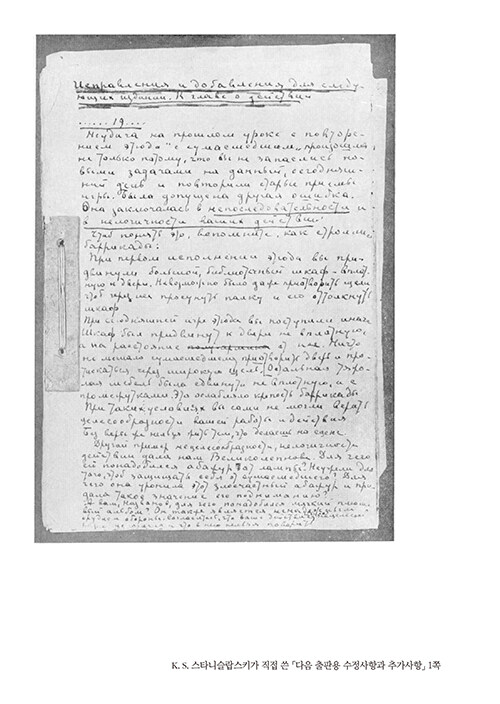 Исправления и добавления для следу-
ющих изданий. К главе о действии
......19......
Неудача на прошлом уроке с повторе-
нием этюда "с сумасшедшим" произошла
не только потому, что вы не запаслись но-
выми задачами на данный, сегодняш-
ний день и повторили старые приемы
игры. Была допущена другая ошибка.
Она заключалась в непоследовательности и
в нелогичности ваших действий.
Чтоб понять это, вспомните, как строили
баррикады:
При первом исполнении этюда вы при-
двинули большой, библиотечный шкаф вплот-
ную к двери. Невозможно было даже приотворить щели
чтоб через нее просунуть палку и его оттолкнуть
шкаф
При сегодняшней игре этюда вы поступили иначе
Шкаф был придвинут к двери не вплотную,
а на расстояние от нее. Ничто
не мешало сумасшедшему приотворить дверь и про-
тискаться через широкую щель. Остальная тяже-
лая мебель была сдвинута не вплотную, и с
промежутками. Это ослабляло крепость баррикады
При таких условиях вы сами не могли верить
целесообразности вашей работы и действия
Без веры же нельзя жить тем, что делаешь на сцене
Другой пример нецелесообразности, нелогичности
действий дала нам Великолепнова. Для чего
ей понадобился абажур от лампы? Неужели для
того, чтоб защищать себя от сумасшедшего? Для
чего она уронила этот злосчастный абажур и при-
дала такое значение его поднималию?
А вам, Названов, для чего понадобился плюше-
вый альбом? Он также является
K. S. 스타니슬랍스키가 직접 쓴 「다음 출판용 수정사항과 추가사항」 1쪽